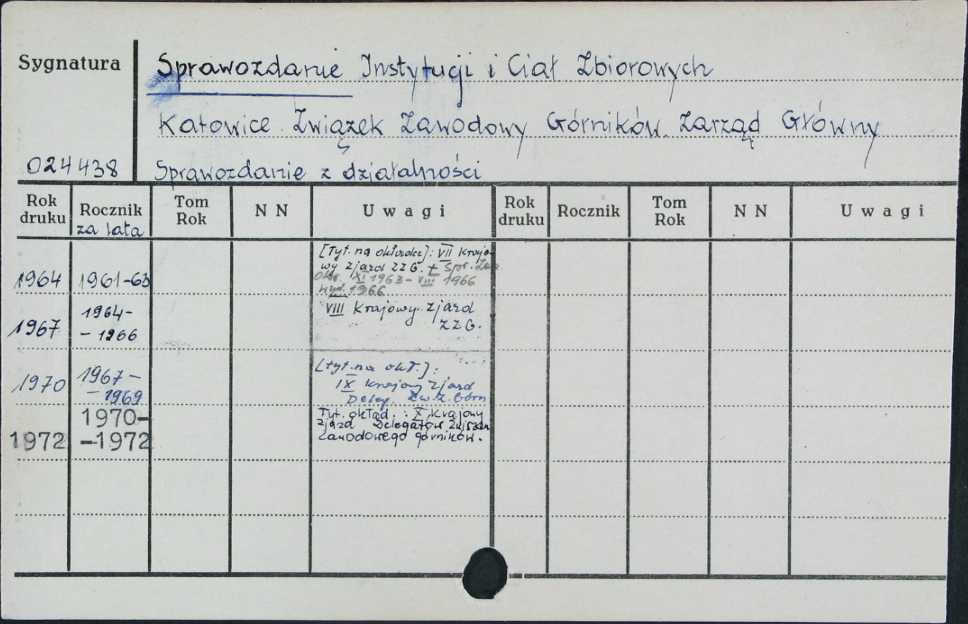 Sygnatura
Sprawozdanie Instytucji i Ciał Zbiorowych
Katowice. Związek Zawodowy Górników. Zarząd Główny
024438 Sprawozdanie z działalności
Rok druku Rocznik za lata Tom Rok N N Uwagi Rok druku Rocznik Tom Rok N N Uwagi
1964 1961-63 [Tyt. na okładce]: VII Krajo-
wy zjazd ZZG. + Spr.
XI 1963 - VIII 1966
1966
1967 1964-
-1966 VIII Krajowy zjazd
ZZG.
1970 1967-
-1969 [tyt. na okł.]:
IX Krajowy Zjazd
Deleg. Zw. Z. Górn
1972 1970-
-1972 Tyt. okład.: X Krajowy
zjazd Delegatów Związku
Zawodowego górników.